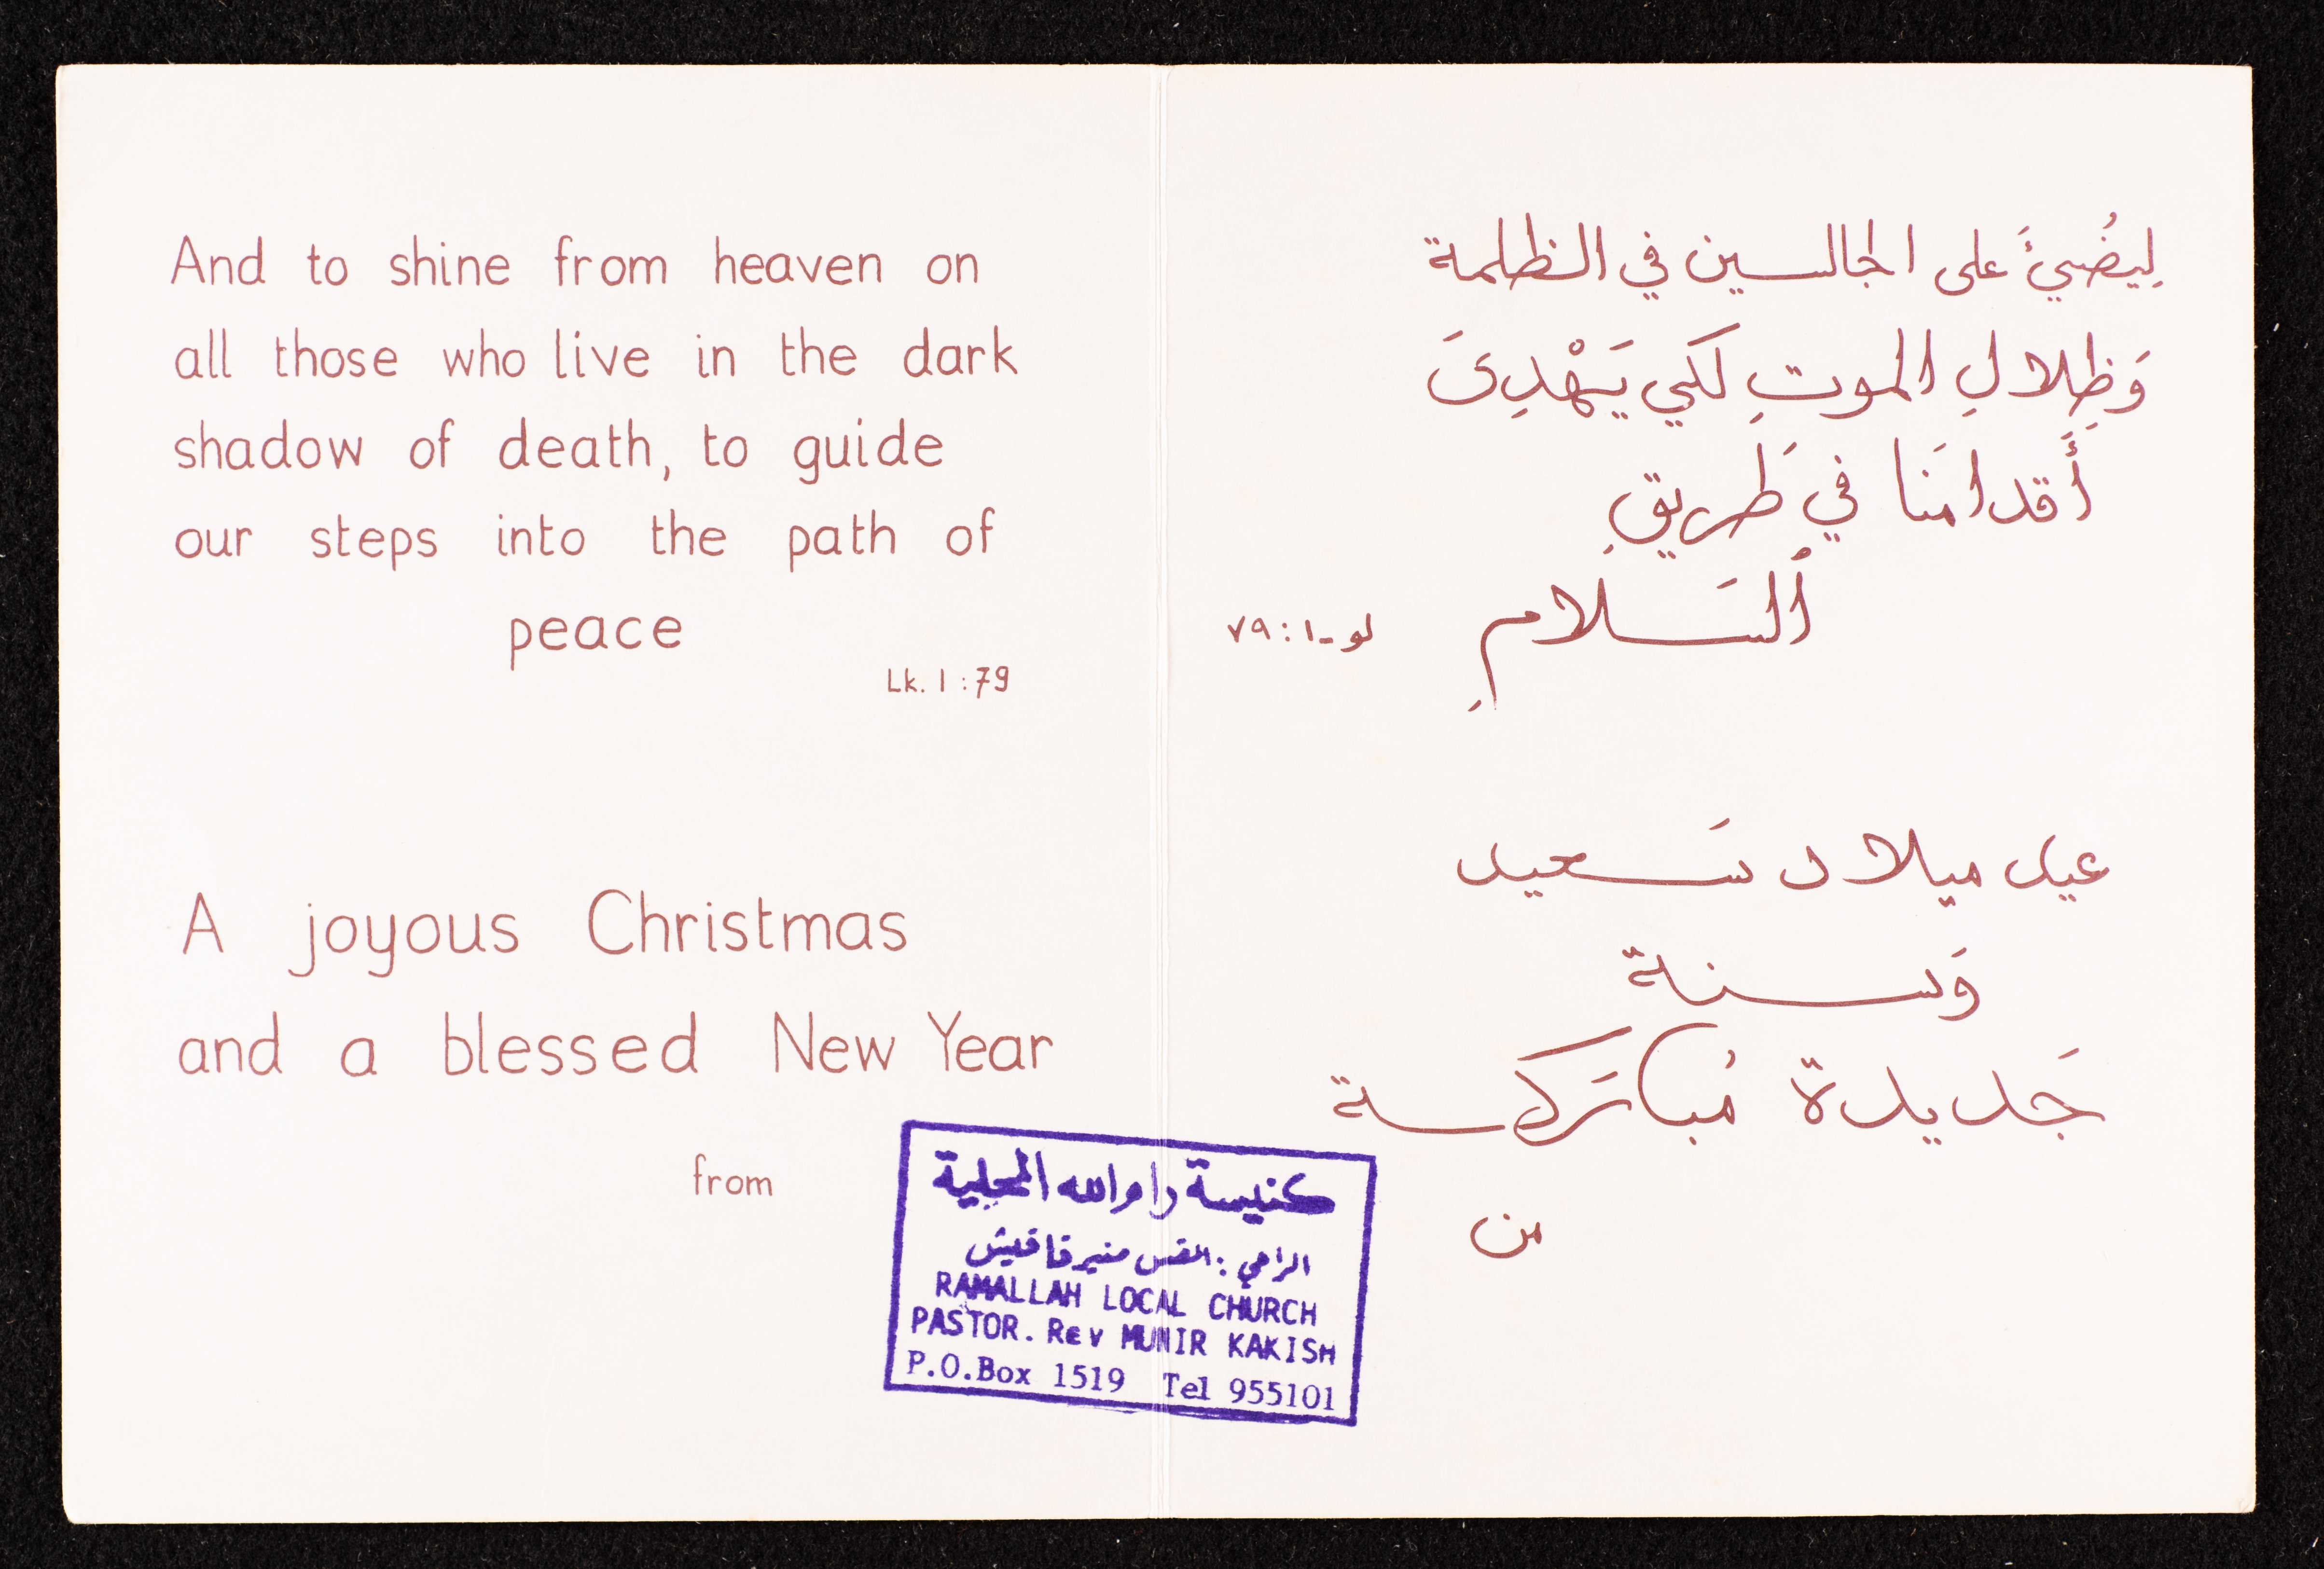 And to shine from heaven on
all those who live in the dark
shadow of death, to guide
our steps into the path of
peace
Lk. 1:79
A joyous Christmas
and a blessed New Year
from
لِيُضيءَ على الجالسين في الظلمة
وَظِلالِ الموتِ لكي يَهْدِىَ
أَقدامَنا في طَريقِ
ٱلسَلامِ
لو-١:٧٩
عيد ميلاد سَعيد
وَسنة
جَديدة مُباركَة
من
كنيسة رام الله المحلية
الراعي: القس منير قاقيش
RAMALLAH LOCAL CHURCH
PASTOR. Rev MUNIR KAKISH
P.O.Box 1519 Tel 955101